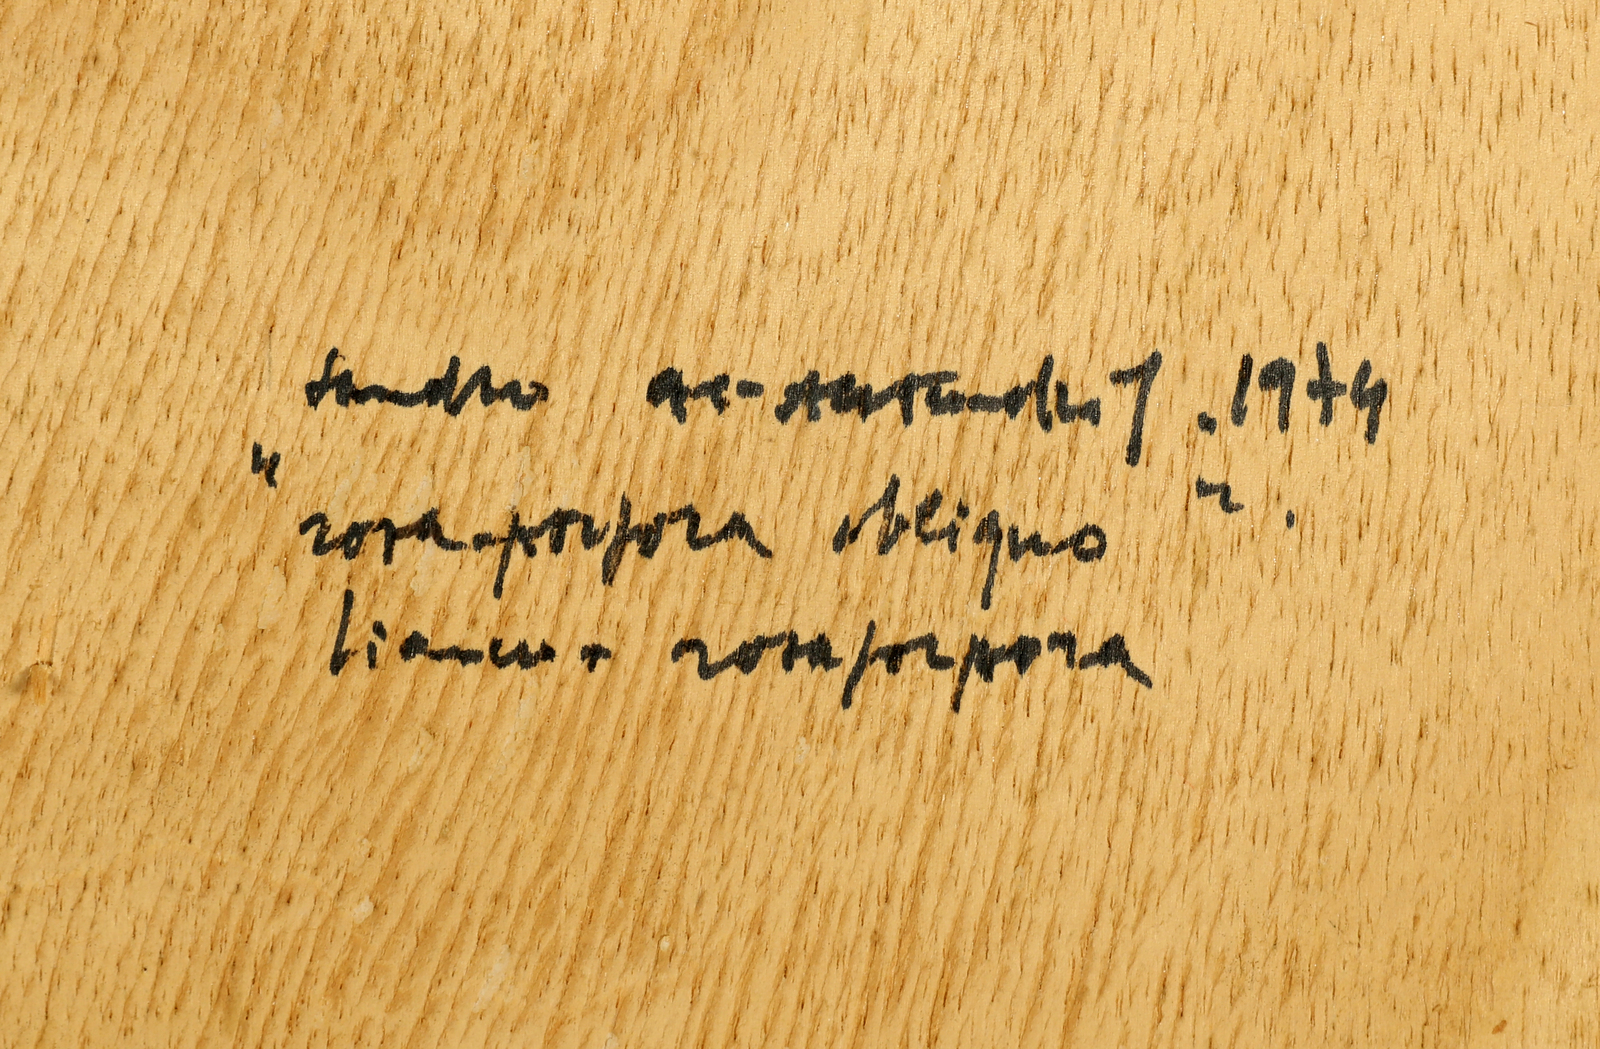 sandro de-alexandris . 1974
"rosa-porpora obliquo".
bianco + rosaporpora